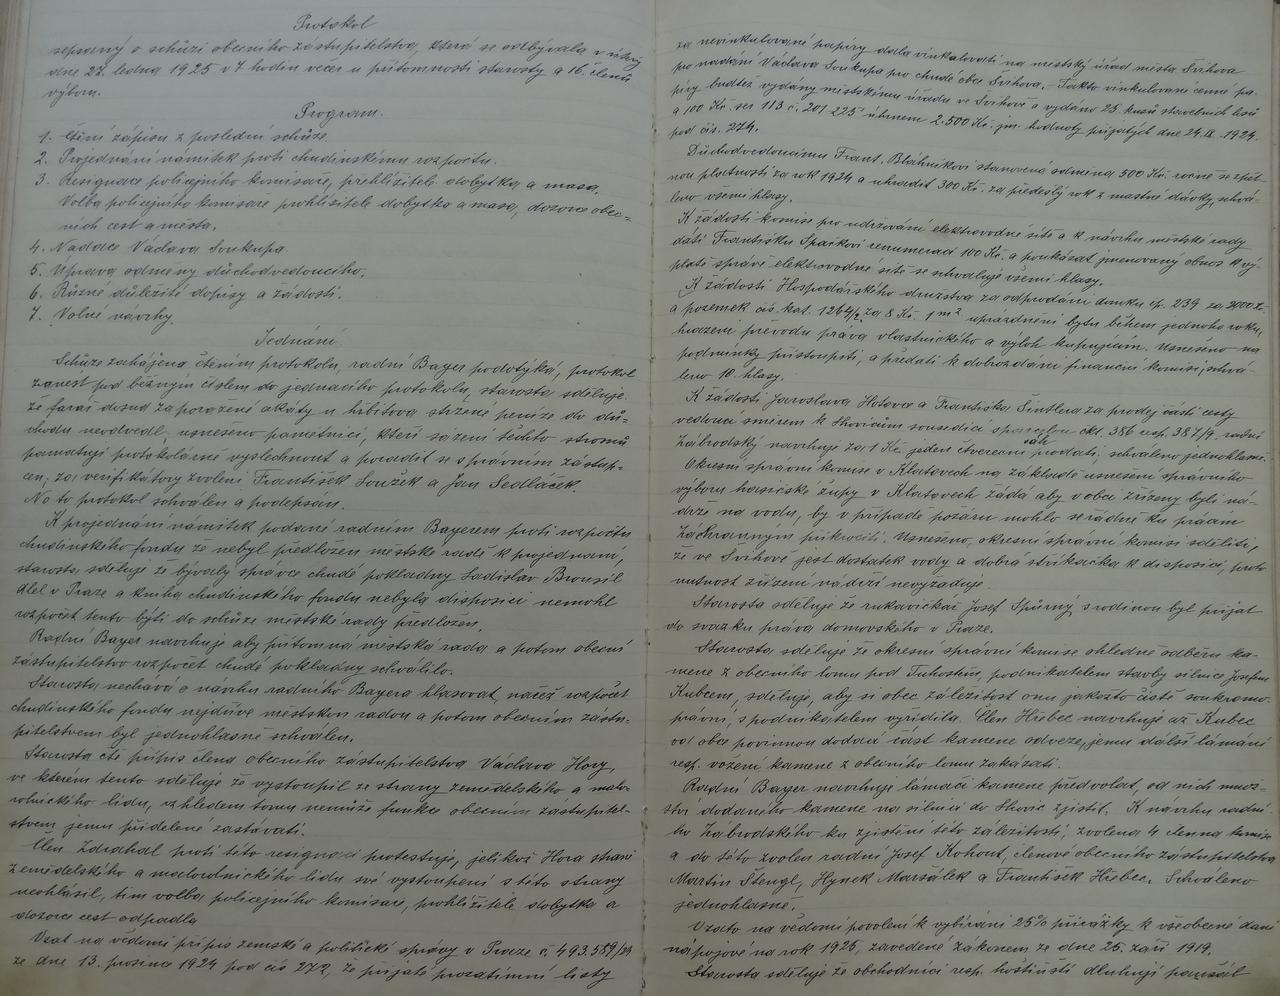 Protokol
sepsaný o schůzi obecního zastupitelstva, která se odbývala v úterý
dne 27. ledna 1925 v 7 hodin večer u přítomnosti starosty a 16. členů
výboru.
Program.
1. Čtení zápisu z poslední schůze.
2. Projednání námitek proti chudinskému rozpočtu.
3. Resignace policejního komisaře, prohlížitele dobytka a masa.
Volba policejního komisaře prohlížitele dobytka a masa, dozorce obec=
ních cest a města.
4. Nadace Václava Soukupa.
5. Úprava odměny důchodvedoucího.
6. Různé důležité dopisy a žádosti.
7. Volné návrhy.
Jednání.
Schůze zahájena čtením protokolu, radní Bayer podotýká, protokol
zanést pod běžným číslem do jednacího protokolu, starosta sděluje,
že farář dosud za poražené akáty u hřbitova stržené peníze do dů=
chodu neodvedl, usneseno pamětníci, kteří sázení těchto stromů
pamatují protokolárně vyslechnout a poradit se s právním zástup=
cem, za verifikátory zvoleni František Toužek a Jan Sedláček.
Na to protokol schválen a podepsán.
K projednání námitek podané radním Bayerem proti rozpočtu
chudinského fondu že nebyl předložen městské radě k projednání,
starosta sděluje že bývalý správce chudé pokladny Ladislav Brousil
dlel v Praze a kniha chudinského fondu nebyla disposici nemohl
rozpočet tento býti do schůze městské rady předložen.
Radní Bayer navrhuje aby přítomná městská rada a potom obecní
zastupitelstvo rozpočet chudé pokladny schválilo.
Starosta nechává o návrhu radního Bayera hlasovat, načež rozpočet
chudinského fondu nejdříve městskou radou a potom obecním zastu=
pitelstvem byl jednohlasně schválen.
Starosta čte přípis člena obecního zastupitelstva Václava Hory,
ve kterém tento sděluje že vystoupil ze strany zemědělského a malo=
rolnického lidu, vzhledem tomu nemůže funkce obecním zastupitel=
stvem jemu přidělené zastávati.
Člen Zdrahal proti této resignaci protestuje, jelikož Hora straně
zemědělského a malorolnického lidu své vystoupení s této strany
neohlásil, tím volba policejního komisaře, prohlížitele dobytka a
dozorce cest odpadla
Vzat na vědomí přípis zemské a politické správy v Praze č. 493.589/24
ze dne 13. prosince 1924 pod čís 272, že přijaté prozatimní listy
za nevinkulované papíry dala vinkulovati na městský úřad města Švihova
pro nadání Václava Soukupa pro chudé obce Švihova. Takto vinkulované cenné pa=
píry buďtež vydány místskému úřadu ve Švihově a vydáno 25 kusů stavebních losů
a 100 Kč ser 113 č. 201 225 úhrnem 2.500 Kč. jm. hodnoty přijatých dne 24.IX. 1924.
pod čís. 274.
Důchodvedoucímu Frant. Bláhníkovi stanovena odměna 500 Kč. ročně se zpět=
nou platností za rok 1924 a uhradit 300 Kč. za předešlý rok z mastné dávky, schvá=
leno všemi hlasy.
K žádosti komise pro udržování elektrovodné sítě a k návrhu městské rady
dáti Františku Špačkovi remuneraci 100 Kč. a poukázat jmenovaný obnos k vý=
platě správě elektrovodné sítě se schvaluje všemi hlasy.
K žádosti Hospodářského družstva za odprodání domku čp. 239 za 2000 Kč.
a pozemek čís. kat. 1264/2 za 8 Kč. 1 m² uprázdnění bytu během jednoho roku,
hrazení převodu práva vlastnického a výloh kupujícím. Usneseno na
podmínky přistoupiti, a předati k dobrozdání finanční komisi, schvá=
leno 10. hlasy.
K žádosti Jaroslava Hotovce a Františka Šintlera za prodej části cesty
vedoucí směrem k Shovicím sousedící s parcelou čkt. 386 resp. 387/9. radní
Zábrodský navrhuje za 1 Kč. jeden čtvereční sáh prodati, schváleno jednohlasně.
Okresní správní komise v Klatovech na základě usnesení správního
výboru hasičské župy v Klatovech žádá aby v obci zřízeny byli ná=
drže na vodu, by v případě požáru mohlo se řádně ku pracím
záchranným přikročiti. Usneseno, okresní správní komisi sděliti,
že ve Švihově jest dostatek vody a dobrá stříkačka k disposici, proto
nutnost zřízení nádrží nevyžaduje.
Starosta sděluje že rukavičkář Josef Spurný s rodinou byl přijat
do svazku práva domovského v Praze.
Starosta sděluje že okresní správní komise ohledně odběru ka=
mene z obecního lomu pod Tuhoštěm, podnikatelem stavby silnice Josefem
Kubcem, sděluje, aby si obec záležitost onu jakožto čistě soukromo=
právní, s podnikatelem vyřídila. Člen Hřebec navrhuje až Kubec
od obce povinnou dodací část kamene odveze, jemu další lámání
resp. vožení kamene z obecního lomu zakázati.
Radní Bayer navrhuje lámači kamene předvolat, od nich množ=
ství dodaného kamene na silnici do Shovic zjistit. K návrhu radní=
ho Zábrodského ku zjistění této záležitosti, zvolena 4 členná komise
a do této zvolen radní Josef Kohout, členové obecního zastupitelstva
Martin Štengl, Hynek Maršálek a František Hřebec. Schváleno
jednohlasně.
Vzato na vědomí povolení k vybírání 25% přirážky k všeobecné dani
nápojové na rok 1925, zavedené zákonem ze dne 25. září 1919.
Starosta sděluje že obchodníci resp. hostinští dluhují paušál